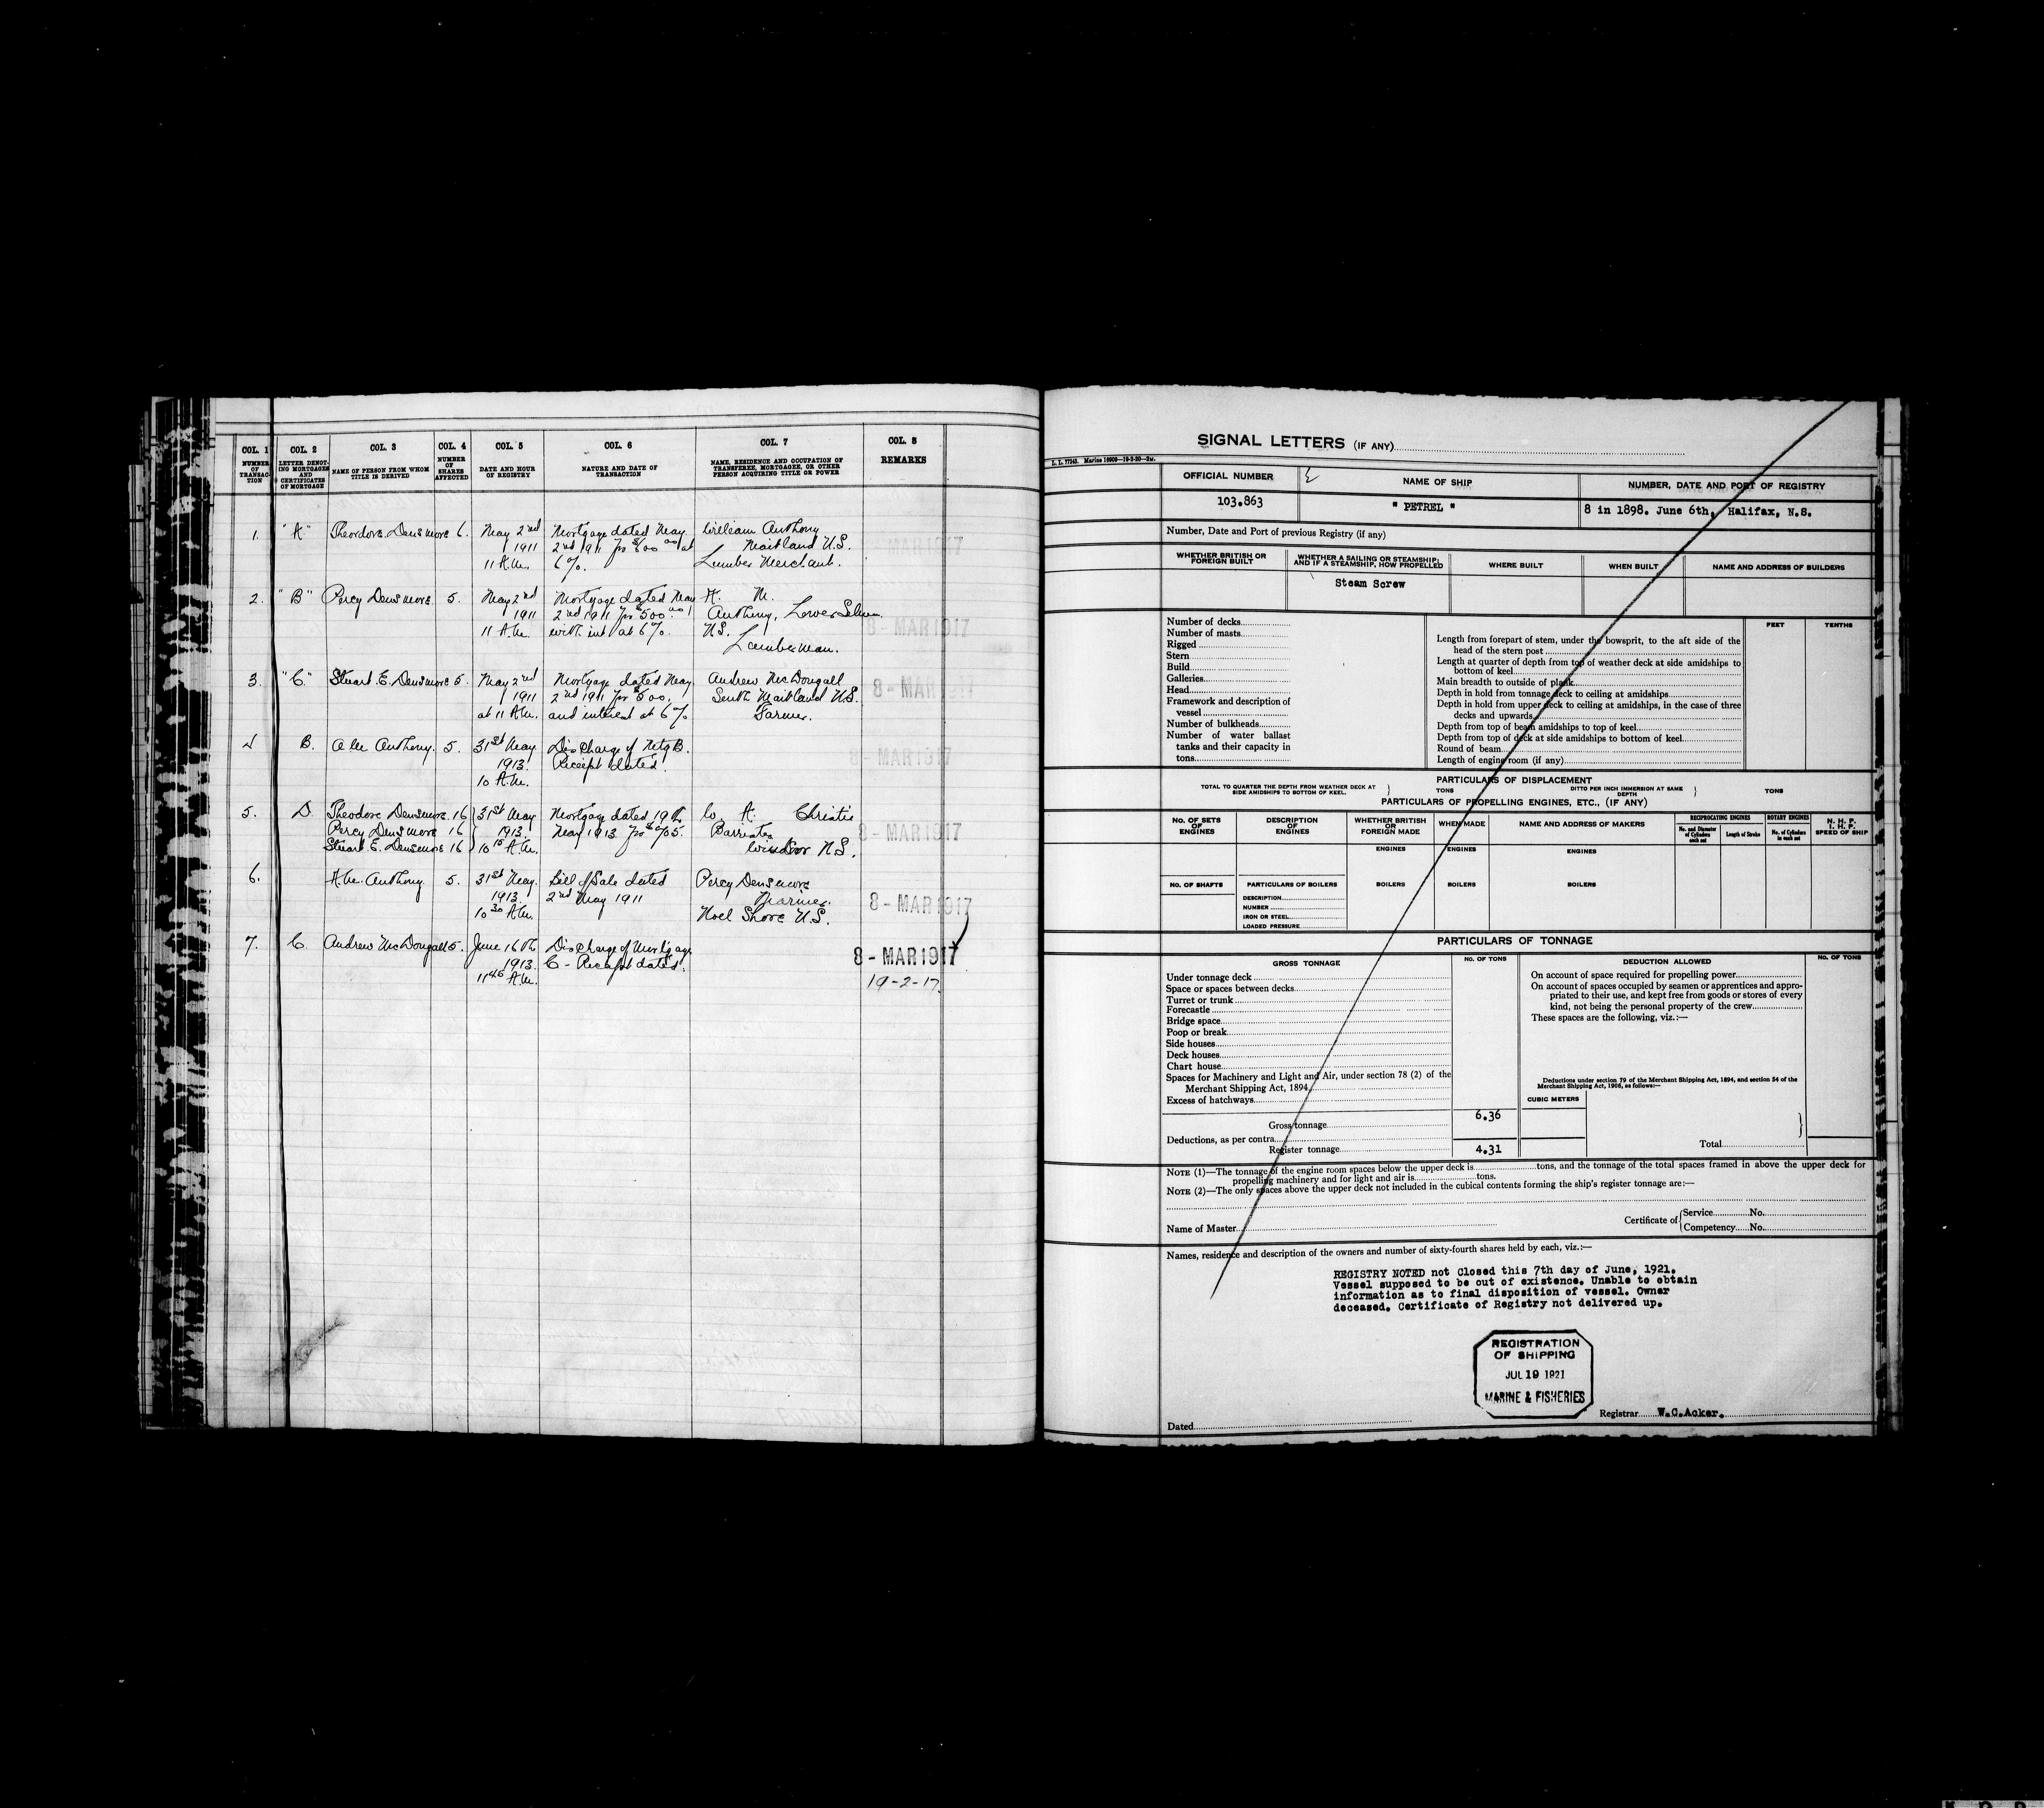 COL. 1 COL. 2 COL. 3 COL. 4 COL. 5 COL. 6 COL. 7 COL. 8
NUMBER OF TRANSACTION
LETTER DENOTING MORTGAGES AND CERTIFICATES OF MORTGAGE
NAME OF PERSON FROM WHOM TITLE IS DERIVED
NUMBER OF SHARES AFFECTED
DATE AND HOUR OF REGISTRY
NATURE AND DATE OF TRANSACTION
NAME, RESIDENCE AND OCCUPATION OF TRANSFEREE, MORTGAGEE, OR OTHER PERSON ACQUIRING TITLE OR POWER
REMARKS
1. "A" Theodore Densmore 6. May 2nd Mortgage dated May William Anthony
1911 2nd 1911 for $600 00 at Maitland N.S.
11 A.M. 6%. Lumber Merchant.
MAR 1917
2. "B" Percy Densmore 5. May 2nd Mortgage dated May A. M.
1911 2nd 1911 for $500 00 Anthony, Lower Selma
11 A.M. with int at 6%. N.S.
Lumberman.
8 - MAR 1917
3. "C" Stuart E. Densmore 5. May 2nd Mortgage dated May Andrew McDougall
1911 2nd 1911 for $500, South Maitland N.S.
at 11 A.M. and interest at 6% Farmer.
8 - MAR 1917
4 B. A M Anthony. 5. 31st May Discharge of Mtg B.
1913. Receipt dated.
10 A.M.
8 - MAR 1917
5. D Theodore Densmore. 16 31st May Mortgage dated 19th A. Christie
Percy Densmore 16 1913. May 1913 for Barrister
Stuart. E. Densmore 16 10 15 A.M. Windsor N.S.
8 - MAR 1917
6. A.M. Anthony 5. 31st May. Bill of Sale dated Percy Densmore
1913. 2nd May 1911 Mariner.
10 30 A.M. Noel Shore N.S.
8 - MAR 1917
7. C. Andrew McDougall 5. June 16th Discharge of Mortgage
1913. C - Receipt dated.
11 45 A.M.
8 - MAR 1917
19-2-17.
SIGNAL LETTERS (IF ANY)
L. L. 77243. Marine 16909—19-2-20—2M.
OFFICIAL NUMBER NAME OF SHIP NUMBER, DATE AND PORT OF REGISTRY
103.863 " PETREL " 8 in 1898. June 6th, Halifax, N.S.
Number, Date and Port of previous Registry (if any)
WHETHER BRITISH OR FOREIGN BUILT
WHETHER A SAILING OR STEAMSHIP; AND IF A STEAMSHIP, HOW PROPELLED
WHERE BUILT
WHEN BUILT
NAME AND ADDRESS OF BUILDERS
Steam Screw
FEET TENTHS
Number of decks
Number of masts
Rigged
Stern
Build
Galleries
Head
Framework and description of
vessel
Number of bulkheads
Number of water ballast
tanks and their capacity in
tons
Length from forepart of stem, under the bowsprit, to the aft side of the
head of the stern post
Length at quarter of depth from top of weather deck at side amidships to
bottom of keel
Main breadth to outside of plank
Depth in hold from tonnage deck to ceiling at amidships
Depth in hold from upper deck to ceiling at amidships, in the case of three
decks and upwards
Depth from top of beam amidships to top of keel
Depth from top of deck at side amidships to bottom of keel
Round of beam
Length of engine room (if any)
PARTICULARS OF DISPLACEMENT
TOTAL TO QUARTER THE DEPTH FROM WEATHER DECK AT SIDE AMIDSHIPS TO BOTTOM OF KEEL. } TONS DITTO PER INCH IMMERSION AT SAME DEPTH } TONS
PARTICULARS OF PROPELLING ENGINES, ETC., (IF ANY)
No. OF SETS OF ENGINES
DESCRIPTION OF ENGINES
WHETHER BRITISH OR FOREIGN MADE
WHEN MADE
NAME AND ADDRESS OF MAKERS
RECIPROCATING ENGINES
No. and Diameter of Cylinders each set
Length of Stroke
ROTARY ENGINES
No. of Cylinders in each set
N. H. P.
I. H. P.
SPEED OF SHIP
ENGINES ENGINES ENGINES
No. OF SHAFTS PARTICULARS OF BOILERS BOILERS BOILERS BOILERS
DESCRIPTION
NUMBER
IRON OR STEEL
LOADED PRESSURE
PARTICULARS OF TONNAGE
GROSS TONNAGE No. OF TONS DEDUCTION ALLOWED No. OF TONS
Under tonnage deck
Space or spaces between decks
Turret or trunk
Forecastle
Bridge space
Poop or break
Side houses
Deck houses
Chart house
Spaces for Machinery and Light and Air, under section 78 (2) of the
Merchant Shipping Act, 1894
Excess of hatchways
Gross tonnage 6.36
Deductions, as per contra
Register tonnage 4.31
On account of space required for propelling power
On account of spaces occupied by seamen or apprentices and appro-
priated to their use, and kept free from goods or stores of every
kind, not being the personal property of the crew
These spaces are the following, viz.:—
Deductions under section 79 of the Merchant Shipping Act, 1894, and section 54 of the
Merchant Shipping Act, 1906, as follows:—
CUBIC METERS
Total
NOTE (1)—The tonnage of the engine room spaces below the upper deck is tons, and the tonnage of the total spaces framed in above the upper deck for
propelling machinery and for light and air is tons.
NOTE (2)—The only spaces above the upper deck not included in the cubical contents forming the ship's register tonnage are:—
Name of Master Certificate of { Service No.
Competency No.
Names, residence and description of the owners and number of sixty-fourth shares held by each, viz.:—
REGISTRY NOTED not Closed this 7th day of June, 1921.
Vessel supposed to be out of existence. Unable to obtain
information as to final disposition of vessel. Owner
deceased. Certificate of Registry not delivered up.
REGISTRATION
OF SHIPPING
JUL 19 1921
MARINE & FISHERIES
Dated
Registrar W.C.Acker.